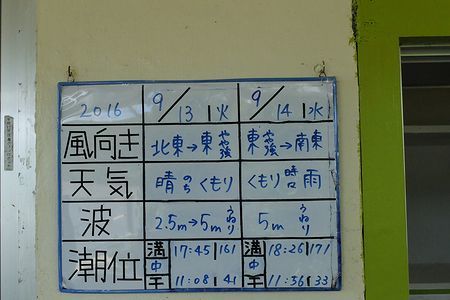 2016 9/13 火 9/14 水
風向き 北東→東 やや強 東 やや強→南東
天気 晴のちくもり くもり時々雨
波 2.5m→5m うねり 5m うねり
潮位 満 17:45 161 満 18:26 171
中 中
干 11:08 41 干 11:36 33